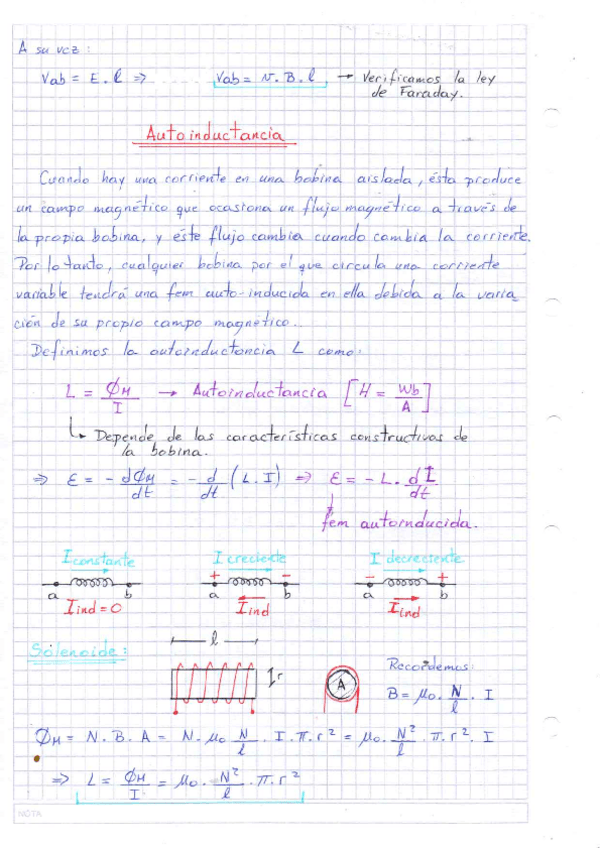 A su vez:
Vab = E. l ⇒ Vab = v. B. l → Verificamos la ley
de Faraday.
Autoinductancia
Cuando hay una corriente en una bobina aislada, ésta produce
un campo magnético que ocasiona un flujo magnético a través de
la propia bobina, y éste flujo cambia cuando cambia la corriente.
Por lo tanto, cualquier bobina por el que circula una corriente
variable tendrá una fem auto-inducida en ella debida a la varia
ción de su propio campo magnético..
Definimos la autoinductancia L como:
L = ϕM/I → Autoinductancia [H = Wb/A]
↳ Depende de las características constructivas de
la bobina.
⇒ ε = - dϕM/dt = - d/dt (L. I) ⇒ ε = - L. dI/dt
fem autoinducida.
I constante I creciente I decreciente
+ - - +
a b a b a b
I ind = 0 I ind I ind
l
Solenoide:
Recordemos:
r A
B = μ0. N/l . I
ϕM = N. B. A = N. μ0 N/l . I. π. r² = μ0. N²/l . π. r². I
⇒ L = ϕM/I = μ0. N²/l . π. r²
NOTA